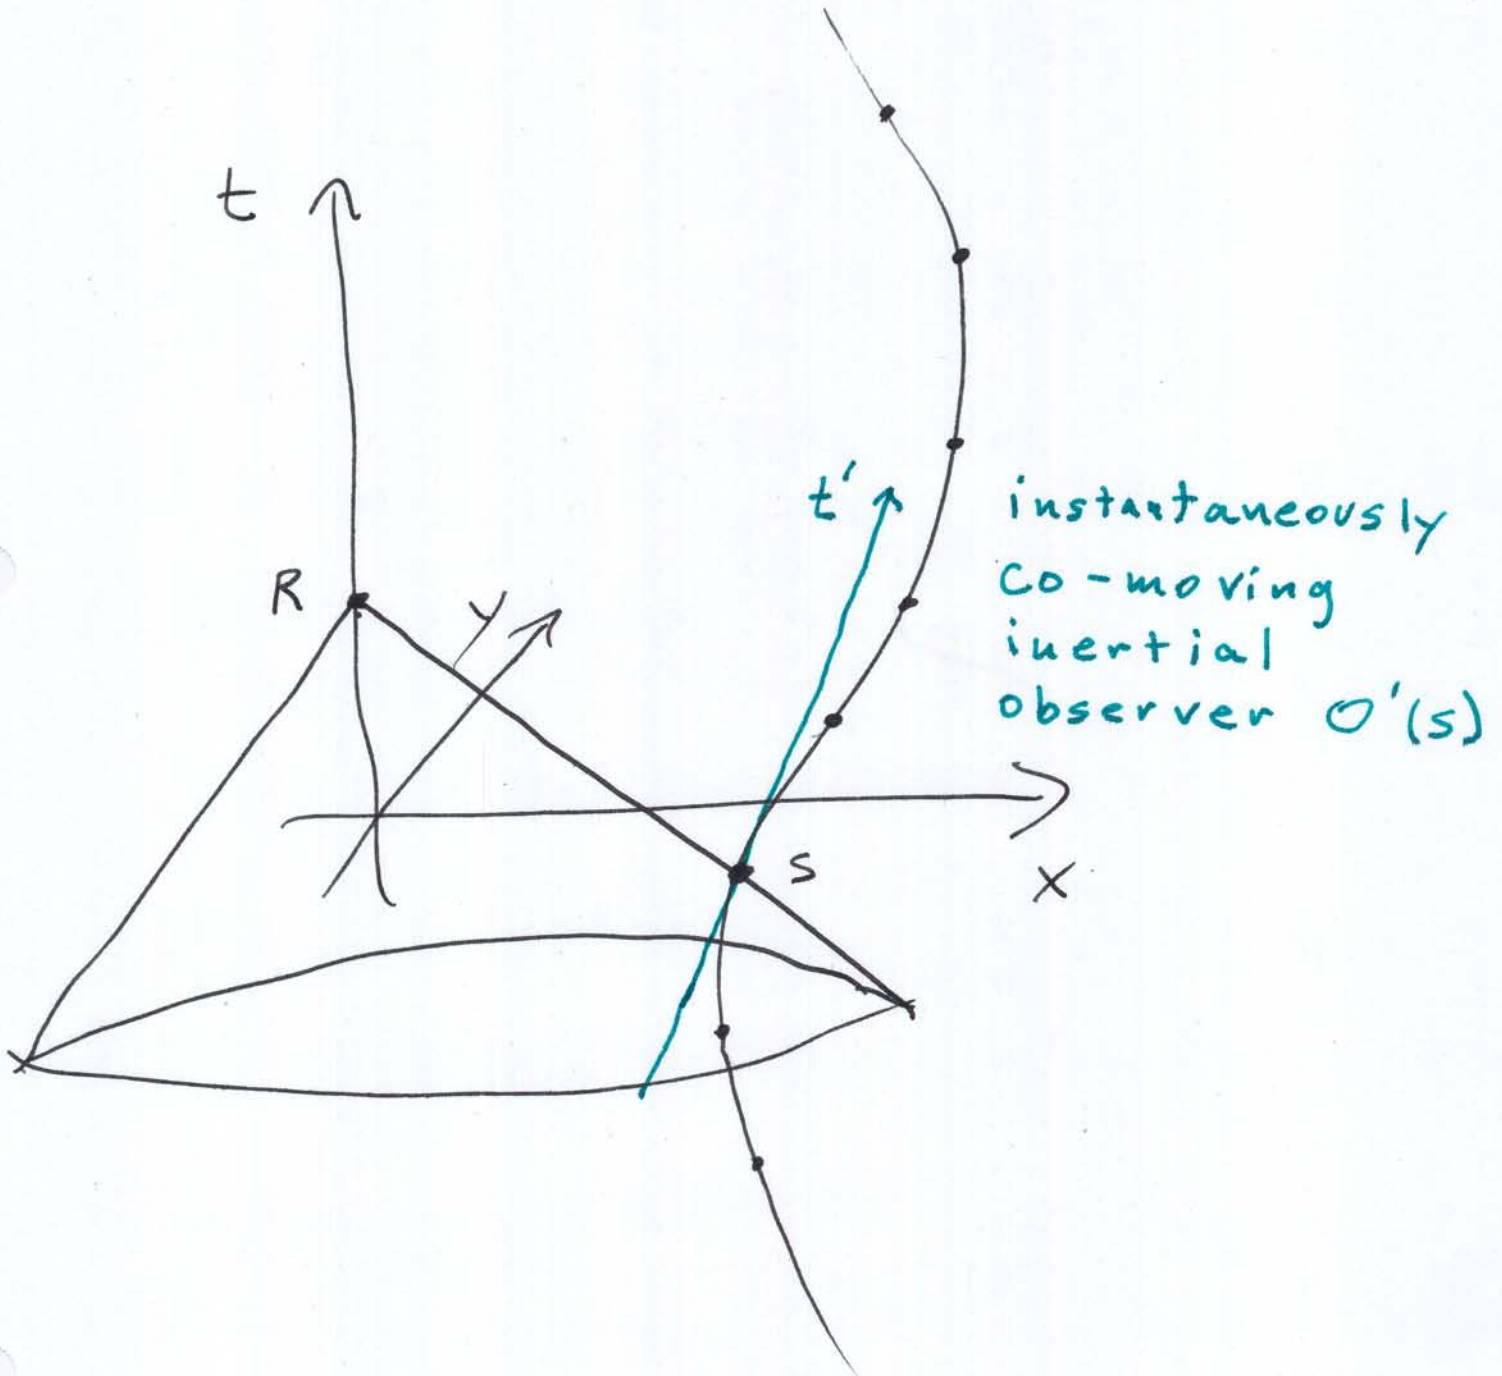 t
t'
instantaneously
co-moving
inertial
observer O'(s)
R
y
s
x